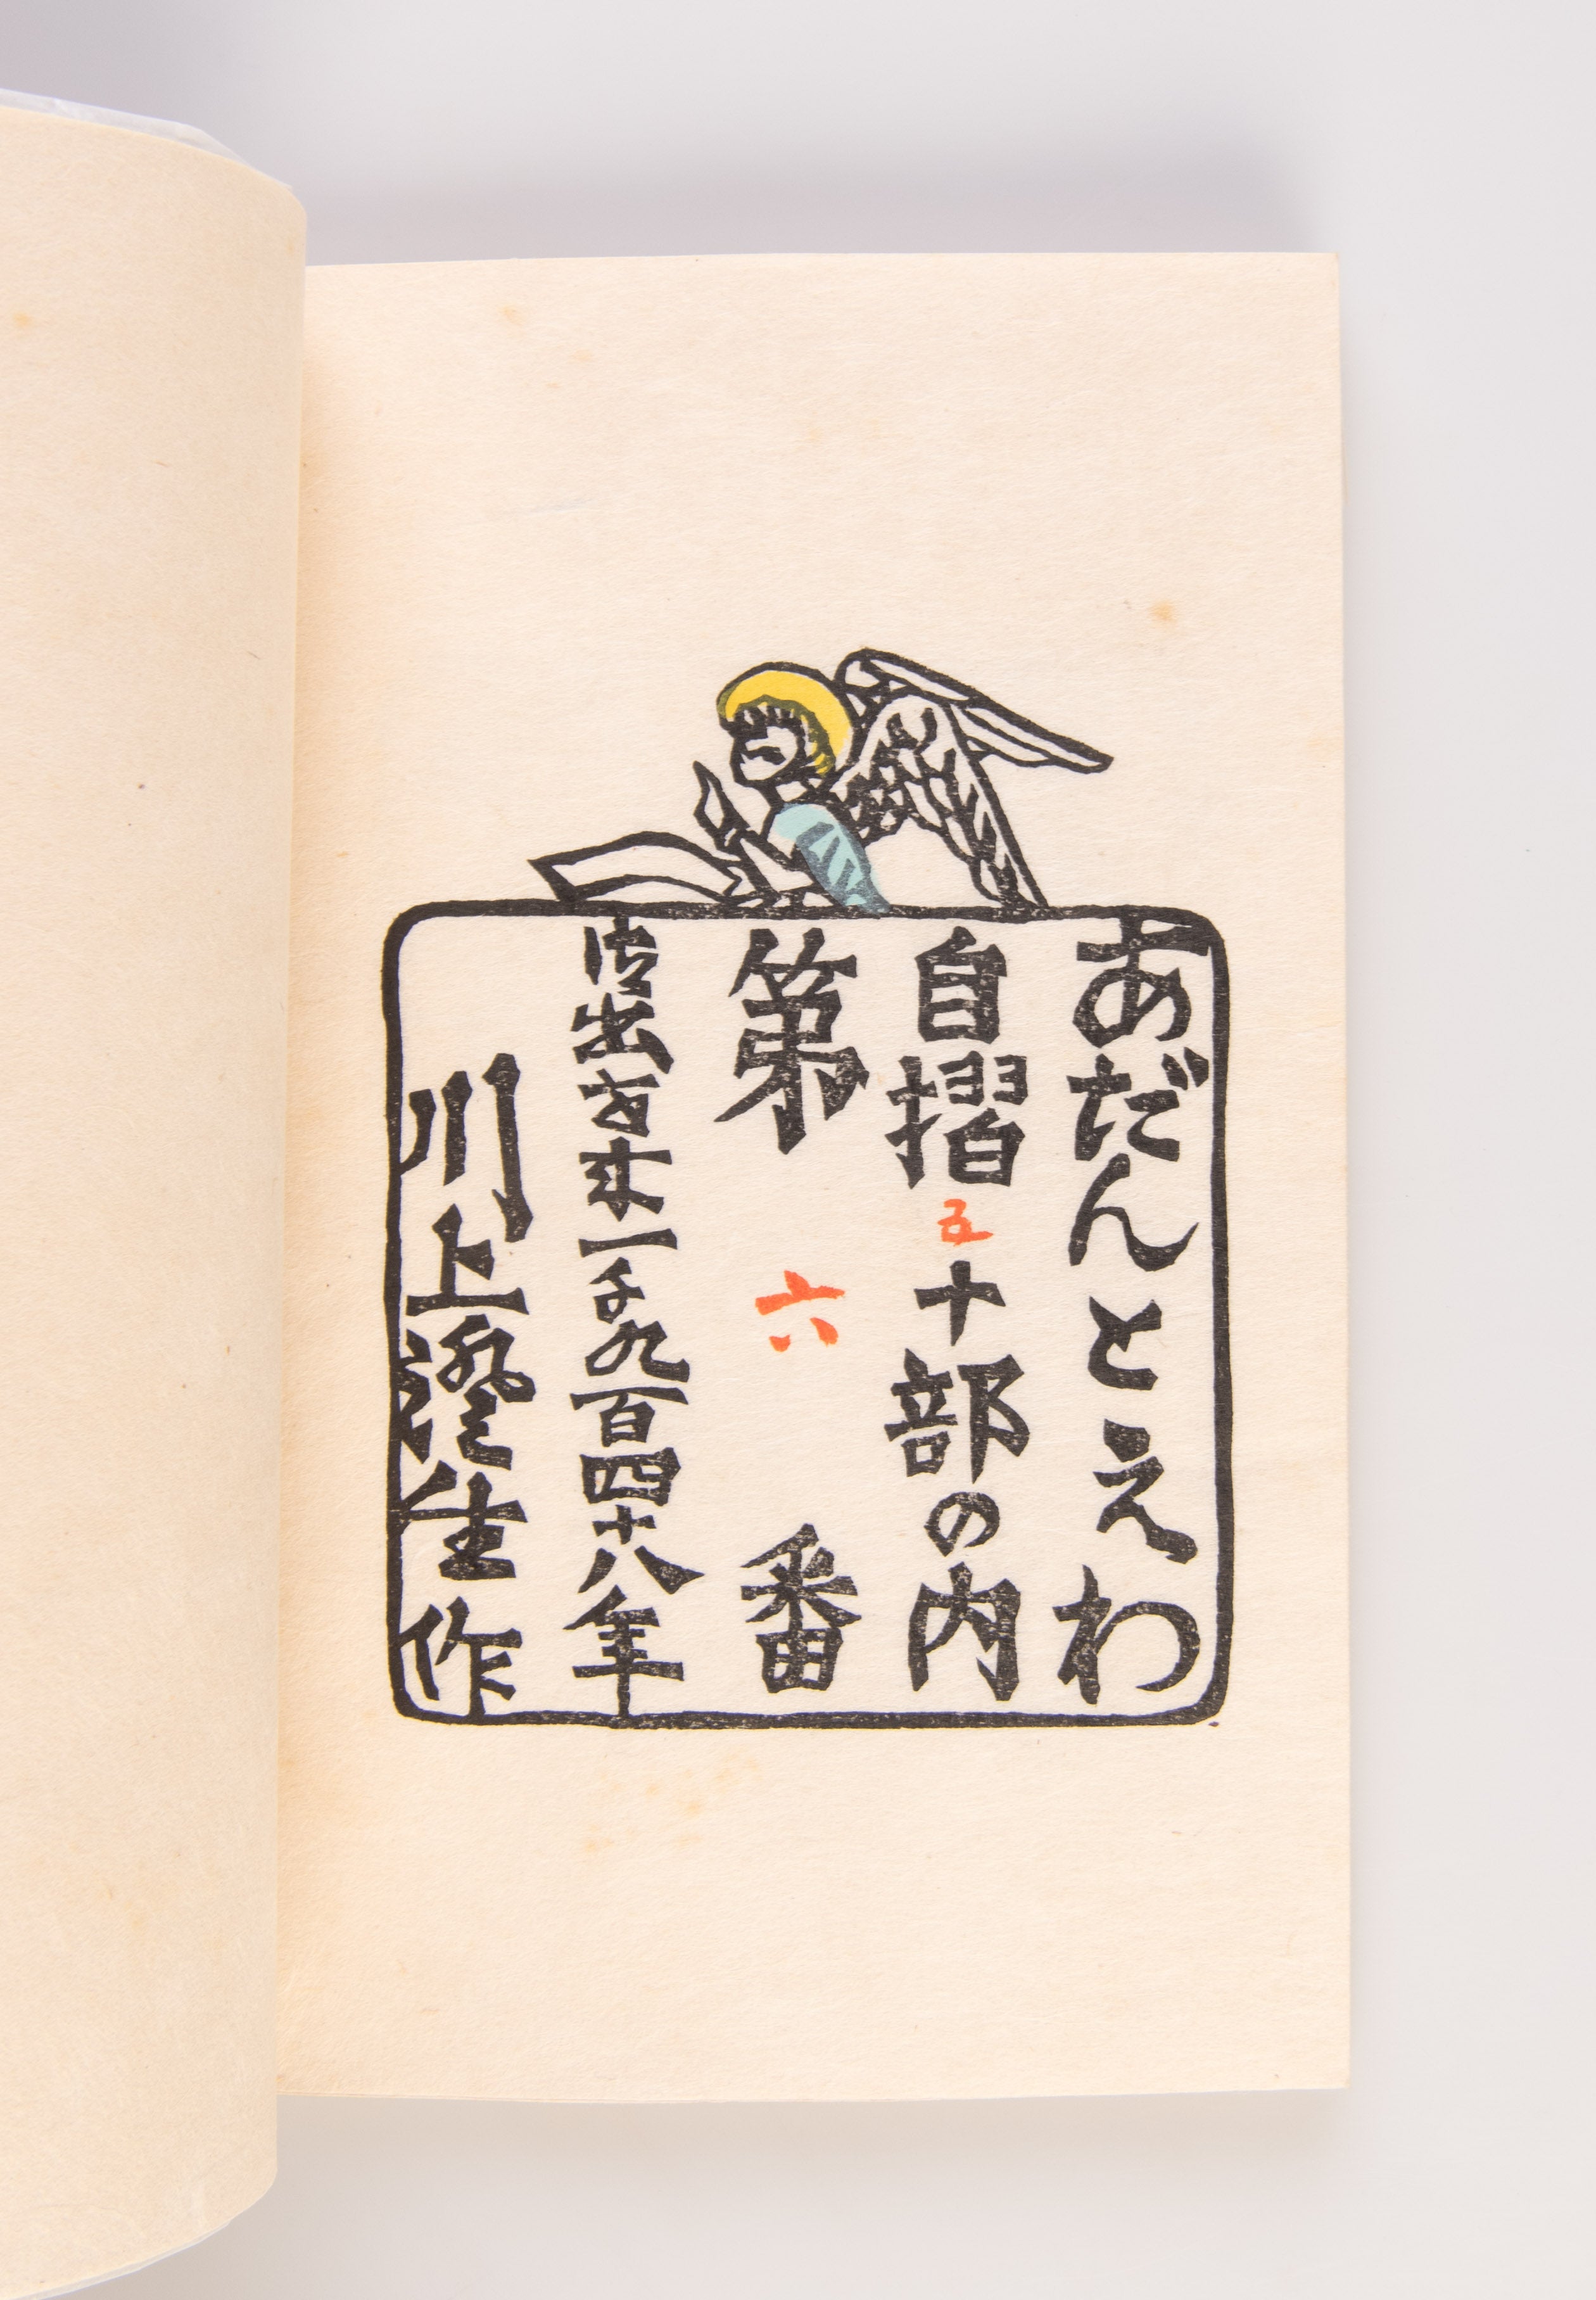 あだんとえわ
自摺五十部の内
第六番
御出世来一千九百四十八年
川上澄生作